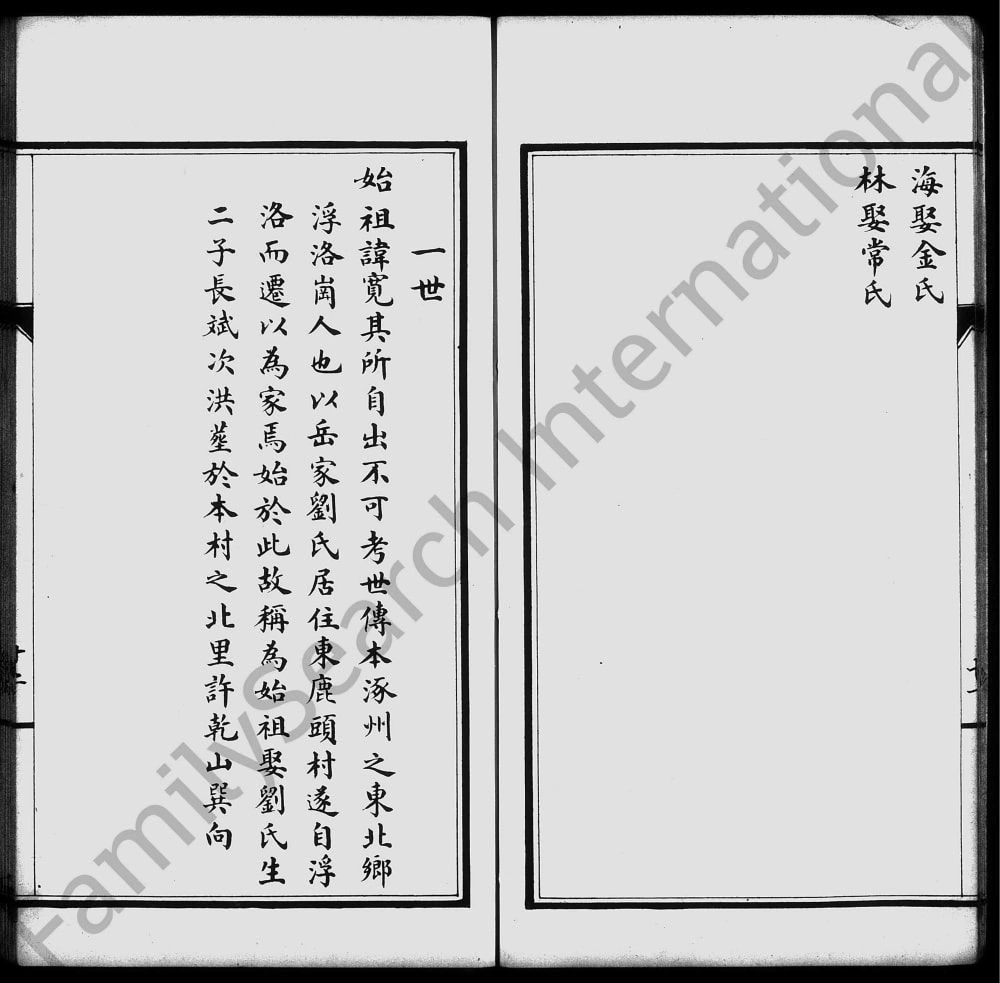 海娶金氏
林娶常氏
十一
一世
始祖諱寬其所自出不可考世傳本涿州之東北鄉
浮洛崗人也以岳家劉氏居住東鹿頭村遂自浮
洛而遷以為家焉始於此故稱為始祖娶劉氏生
二子長斌次洪塟於本村之北里許乾山巽向
十二
FamilySearch International